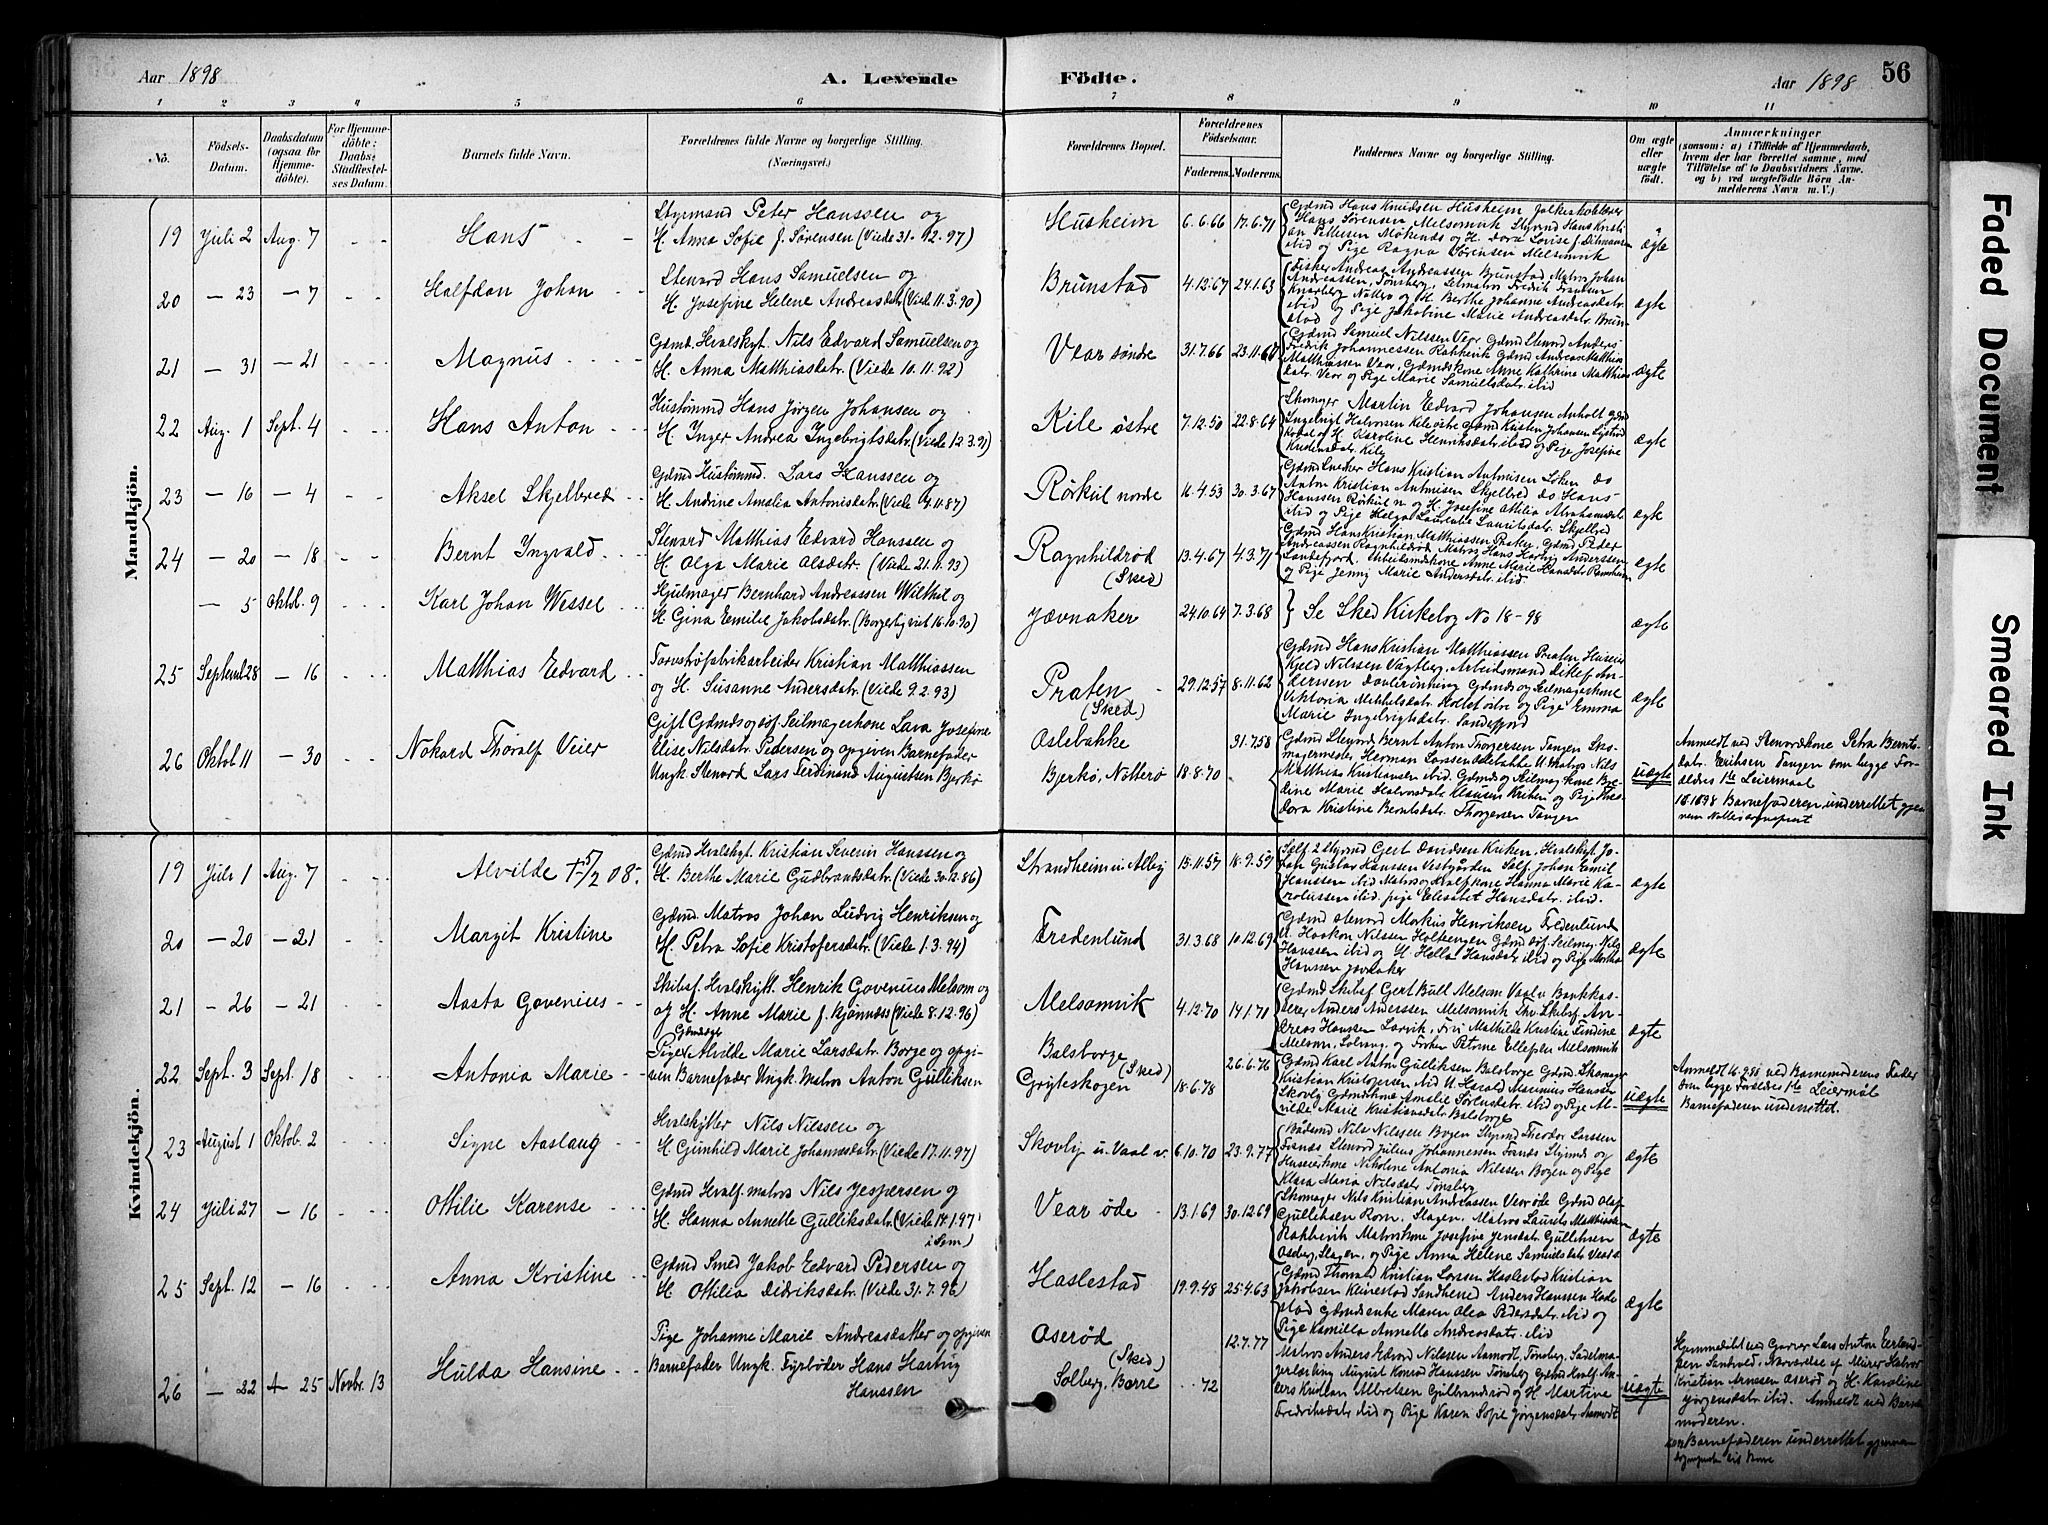 Aar 1898
A. Levende
Födte.
Aar 1898
56
1 2 3 4 5 6 7 8 9 10 11
No.
Födsels-Datum.
Daabsdatum (ogsaa for Hjemme-döbte).
For Hjemme-döbte: Daabs-Stadfæstel-ses Datum.
Barnets fulde Navn.
Forældrenes fulde Navne og borgerlige Stilling. (Næringsvei.)
Forældrenes Bopæl.
Forældrenes Födselsaar.
Faderens. Moderens.
Faddernes Navne og borgerlige Stilling.
Om ægte eller uægte født.
Anmærkninger
(saasom: a) i Tilfælde af Hjemmedaab,
hvem der har forrettet samme, med
Tilföielse af to Daabsvidners Navne.
og b) ved uægtefödte Börn An-
melderens Navn m. V.)
Mandkjön.
19 Juli 2 Aug. 7 Hans
Styrmand Peter Hanssen og
H. Anna Sofie f. Sørensen (Viede 31.12.97)
Husheim 6.6.66 17.6.71
Gdmd Hans Knudsen Husheim
Hans Sørensen Melsomvik Styrmd Hans Kristi-
ibid og Pige Ragna Sørensen Melsomvik
ægte
20 – 23 – 7 Halfdan Johan
Stenard Hans Samuelsen og
H. Josefine Helene Andreasdatr (Viede 11.3.90)
Brunstad 4.12.67 24.1.63
Fisker Andreas Andreassen Brunstad Matros Johan
Andreassen, Tønsberg,
ibid og Pige Jakobine Marie Andreasdatr. Brun-
stad
ægte
21 – 31 – 21 Magnus
Gdmd. Hvalskyt. Nils Edvard Samuelsen og
H. Anna Matthiasdatr. (Viede 10.11.92)
Vear søndre 31.7.66 23.11.67
Gdmd Samuel Nilssen Vear Gdmd Stenrd Anders
Fredrik Johannessen Rakkevik Gdmd Andreas Matthias
Matthiassen Vear, Gdmdskone Anne Kathrine Matthias
datr. Vear og Pige Marie Samuelsdatr. ibid
ægte
22 Aug. 1 Sept. 4 Hans Anton
Hustømnd Hans Jørgen Johansen og
H. Inger Andrea Ingebrigtsdatr. (Viede 12.3.91)
Kile østre 7.12.50 22.8.64
Skomager Martin Edvard Johansen
Ingebrigt Halvorsen Kile østre Gdmd Kristen Johansen
H. Karoline Henriksdatr. ibid og Pige Josefine
Knudensdatr. Kile
ægte
23 – 16 – 4 Aksel Skjelbred
Gdmd Hustømnd. Lars Hanssen og
H. Andrine Amalia Antonisdatr. (Viede 4.11.87)
Rørkul nordre 16.4.53 30.3.67
Gdmd Snedker Hans Kristian Antonisen Løken Do
Anton Kristian Antonisen Skjelbred do Hans
Hanssen Rørkul n og H. Josefine Otilia Abrahamsdatr.
ibid og Pige Helga Laurentse Lauritsdatr. Skjelbred
ægte
24 – 20 – 18 Bernt Ingvald
Stenard Matthias Edvard Hanssen og
H. Olga Marie Olsdatr. (Viede 21.11.93)
Ragnhildrød (Sked) 13.4.67 4.3.71
Gdmd Hans Kristian Matthiassen Præten, Gdmd Peder
Andreassen Ragnhildrød, Matros Hans Hartvig Anderssen
Sandefjord, Arbeidsmdskone Anne Marie Hansdatr.
og Pige Jenny Marie Andersdatr. ibid.
ægte
– 5 Oktbr. 9 Karl Johan Wessel
Hjulmager Bernhard Andreassen Wilthal og
H. Gina Emilie Jakobsdatr. (Borgerlig viet 16.10.90)
Jævnaker 24.10.64 7.3.68
Se Sked Kirkebog No 18–98
ægte
25 Septembr 28 – 16 Matthias Edvard
Torvstrøfabrikarbeider Kristian Matthiassen
og H. Susanne Andersdatr. (Viede 9.2.93)
Præten (Sked) 29.12.57 8.11.62
Gdmd Hans Kristian Matthiassen Præten, Huseier
Kjeld Nilssen Vagtberg, Arbeidsmand Ditlef An-
derssen
Viktoria Mikkelsdatr. Holtet østre og Pige Emma
Marie Ingebrigtsdatr. Sandefjord
ægte
26 Oktob 11 – 30 Nokard Thoralf Veier
Gift Gdmds og Søf. Seilmagerkone Lava Josefine
Elise Nilsdatr. Pedersen og opgiven Barnefader
Ungk. Stenard Lars Ferdinand Augustsen Bjerkø
Aslebakke
Bjerkø, Nøtterø 18.8.70 31.7.58
Gdmd Stenrd Bernt Anton Thorgersen Tangen Sko-
magermester Herman Larssen Aslebakke U. Matros Nils
Matthias Kristiansen ibid. Gdmds og Seilmag. kone Be-
dine Marie Halvorsdatr. Klausen Kirken og Pige Theo-
dora Kristine Berntsdatr. Thorgersen Tangen
uægte
Anmeldt ved Stenardskone Petra Bernts-
datr. Eriksen Tangen som begge For-
ældres 1ste Leiermaal
Barnefaderen underrettet gjen-
nem Nøtterø sognepræst
Kvindekjön.
19 Juli 1 Aug. 7 Alvilde † 5/2 08.
Gdmd Hvalskyt. Kristian Severin Hanssen og
H. Berthe Marie Gudbrandsdatr. (Viede 30.12.86)
Strandheim u. Alby 15.11.57 18.9.59
Self. 2 Styrmd Gert Davidsen Kirken, Hvalskyt. Jo-
han Gustav Hanssen Vestgården Self. Johan Emil
Hanssen ibid Matros og Hvalf. kone Hanna Marie Ka-
rolussen ibid. pige Elisabet Hansdatr. ibid.
ægte
20 – 20 – 21 Margit Kristine
Gdmd. Matros Johan Ludvig Henriksen og
H. Petra Sofie Kristofersdatr. (Viede 1.3.94)
Fredenlund 31.3.68 10.12.69
Gdmd Stenard Markus Henriksen Fredenlund
U. Haakon Nilssen Holtungen Gdmd Søf. Seilmag. Nils
Hanssen ibid og H. Hella Hansdatr. ibid og Pige Martha
Hanssen Jævnaker
ægte
21 – 26 – 21 Aasta Govenius
Skibsf. Hvalskytt. Henrik Govenius Melsom og
og H. Anne Marie f. Kjønnæss (Viede 8.12.96)
Melsomvik 4.12.70 14.1.71
Gdmd Skibsf Gert Bull Melsom Vaal v Bankkas-
serer Anders Anderssen Melsomvik Skibsf. An-
dreas Hanssen Larvik, Frøi Mathilde Kristine Findine
Melsom, Solvang og Frøken Petrine Ellefsen Melsomvik
ægte
22 Sept. 3 Sept. 18 Antonia Marie
Gdmdsdt.
Pige Alvilde Marie Larsdatr. Borge og opgi-
ven Barnefader Ungk. Matros Anton Gulliksen
Balsborge (Sked)
Gryteskogen 18.6.78 26.6.76
Gdmd Karl Anton Gulliksen Balsborge Gdmd. Skomager
Kristian Kristofersen ibid U. Harald Marinius Hanssen
Skovly Gdmdkone Amalie Sørensdatr. ibid og Pige Al-
vilde Marie Kristiansdatr Balsborge
uægte
Anmeldt 16.9.98 ved Barnemoderens Fader
som begge Forældres 1ste Leiermål
Barnefaderen underrettet.
23 August 1 Oktob. 2 Signe Aaslaug
Hvalskytter Nils Nilssen og
H. Gunhild Marie Johannesdatr. (Viede 17.11.97)
Skovly u. Vaal v. 6.10.70 23.9.77
Bådsmd Nils Nilssen Bogen Styrmd Theodor Larssen
Framnes Stenord Julius Johannessen Framnes Styrmds og
Huseierkone Nikoline Antonia Nilssen Bogen og Pige
Klara Maria Nilsdatr Tønsberg
ægte
24 Juli 27 – 16 Ottilie Karense
Gdmd Hvalf. matros Nils Jespersen og
H. Hanna Annette Gulliksdatr. (Viede 14.1.97
i Sem)
Vear øde 13.1.69 30.12.69
Skomager Nils Kristian Andreassen Vear øde Gdmd Olaf
Gulliksen Rom, Slagen, Matros Laurits Matthiassen
Rakkevik Matroskone Josefine Jensdatr Gulliksen
Oseberg, Slagen, og Pige Anna Helene Samuelsdatr Vear
ægte
25 Sept. 12 – 16 Anna Kristine
Gdmd Smed Jakob Edvard Pedersen og
H. Ottilia Didriksdatr. (Viede 31.7.96)
Haslestad 19.9.48 25.4.63
Gdmd Thorvald Kristian Larssen Haslestad Kristian
Jakobsen Klinestad Sandhered Anders Hanssen Hasle-
stad Gdmdsenke Maren Olea Pedersdatr. ibid og
Pige Kamilla Annette Andreasdatr. ibid
ægte
26 – 22 – 25 Novbr. 13 Hulda Hansine
Pige Johanne Marie Andreasdatter og opgiven
Barnefader Ungk. Fyrbøder Hans Hartvig
Hanssen
Aserød (Sked)
Solberg, Borre 72 12.7.77
Matros Anders Edvard Nilssen Aamodt, Tønsberg, Sadelma-
gerlærling August Konrad Hanssen Tønsberg Gdmd Hvalf. An-
ders Kristian Albretsen Gulbrandrød og H. Martine
Fredriksdatr ibid og Pige Karen Sofie Jørgensdatr. Aamodt
uægte
Hjemmedøbt ved Garver Lars Anton Erland-
sen Sandvold, Nærværelse af Murer Halvor
Kristian Arnessen Aserød og H. Karoline
Jørgensdatr. ibid. Anmeldt ved Barne-
moderen.
Barnefaderen underrettet gjennem
sognepræsten til Borre
Faded Document
Smeared Ink